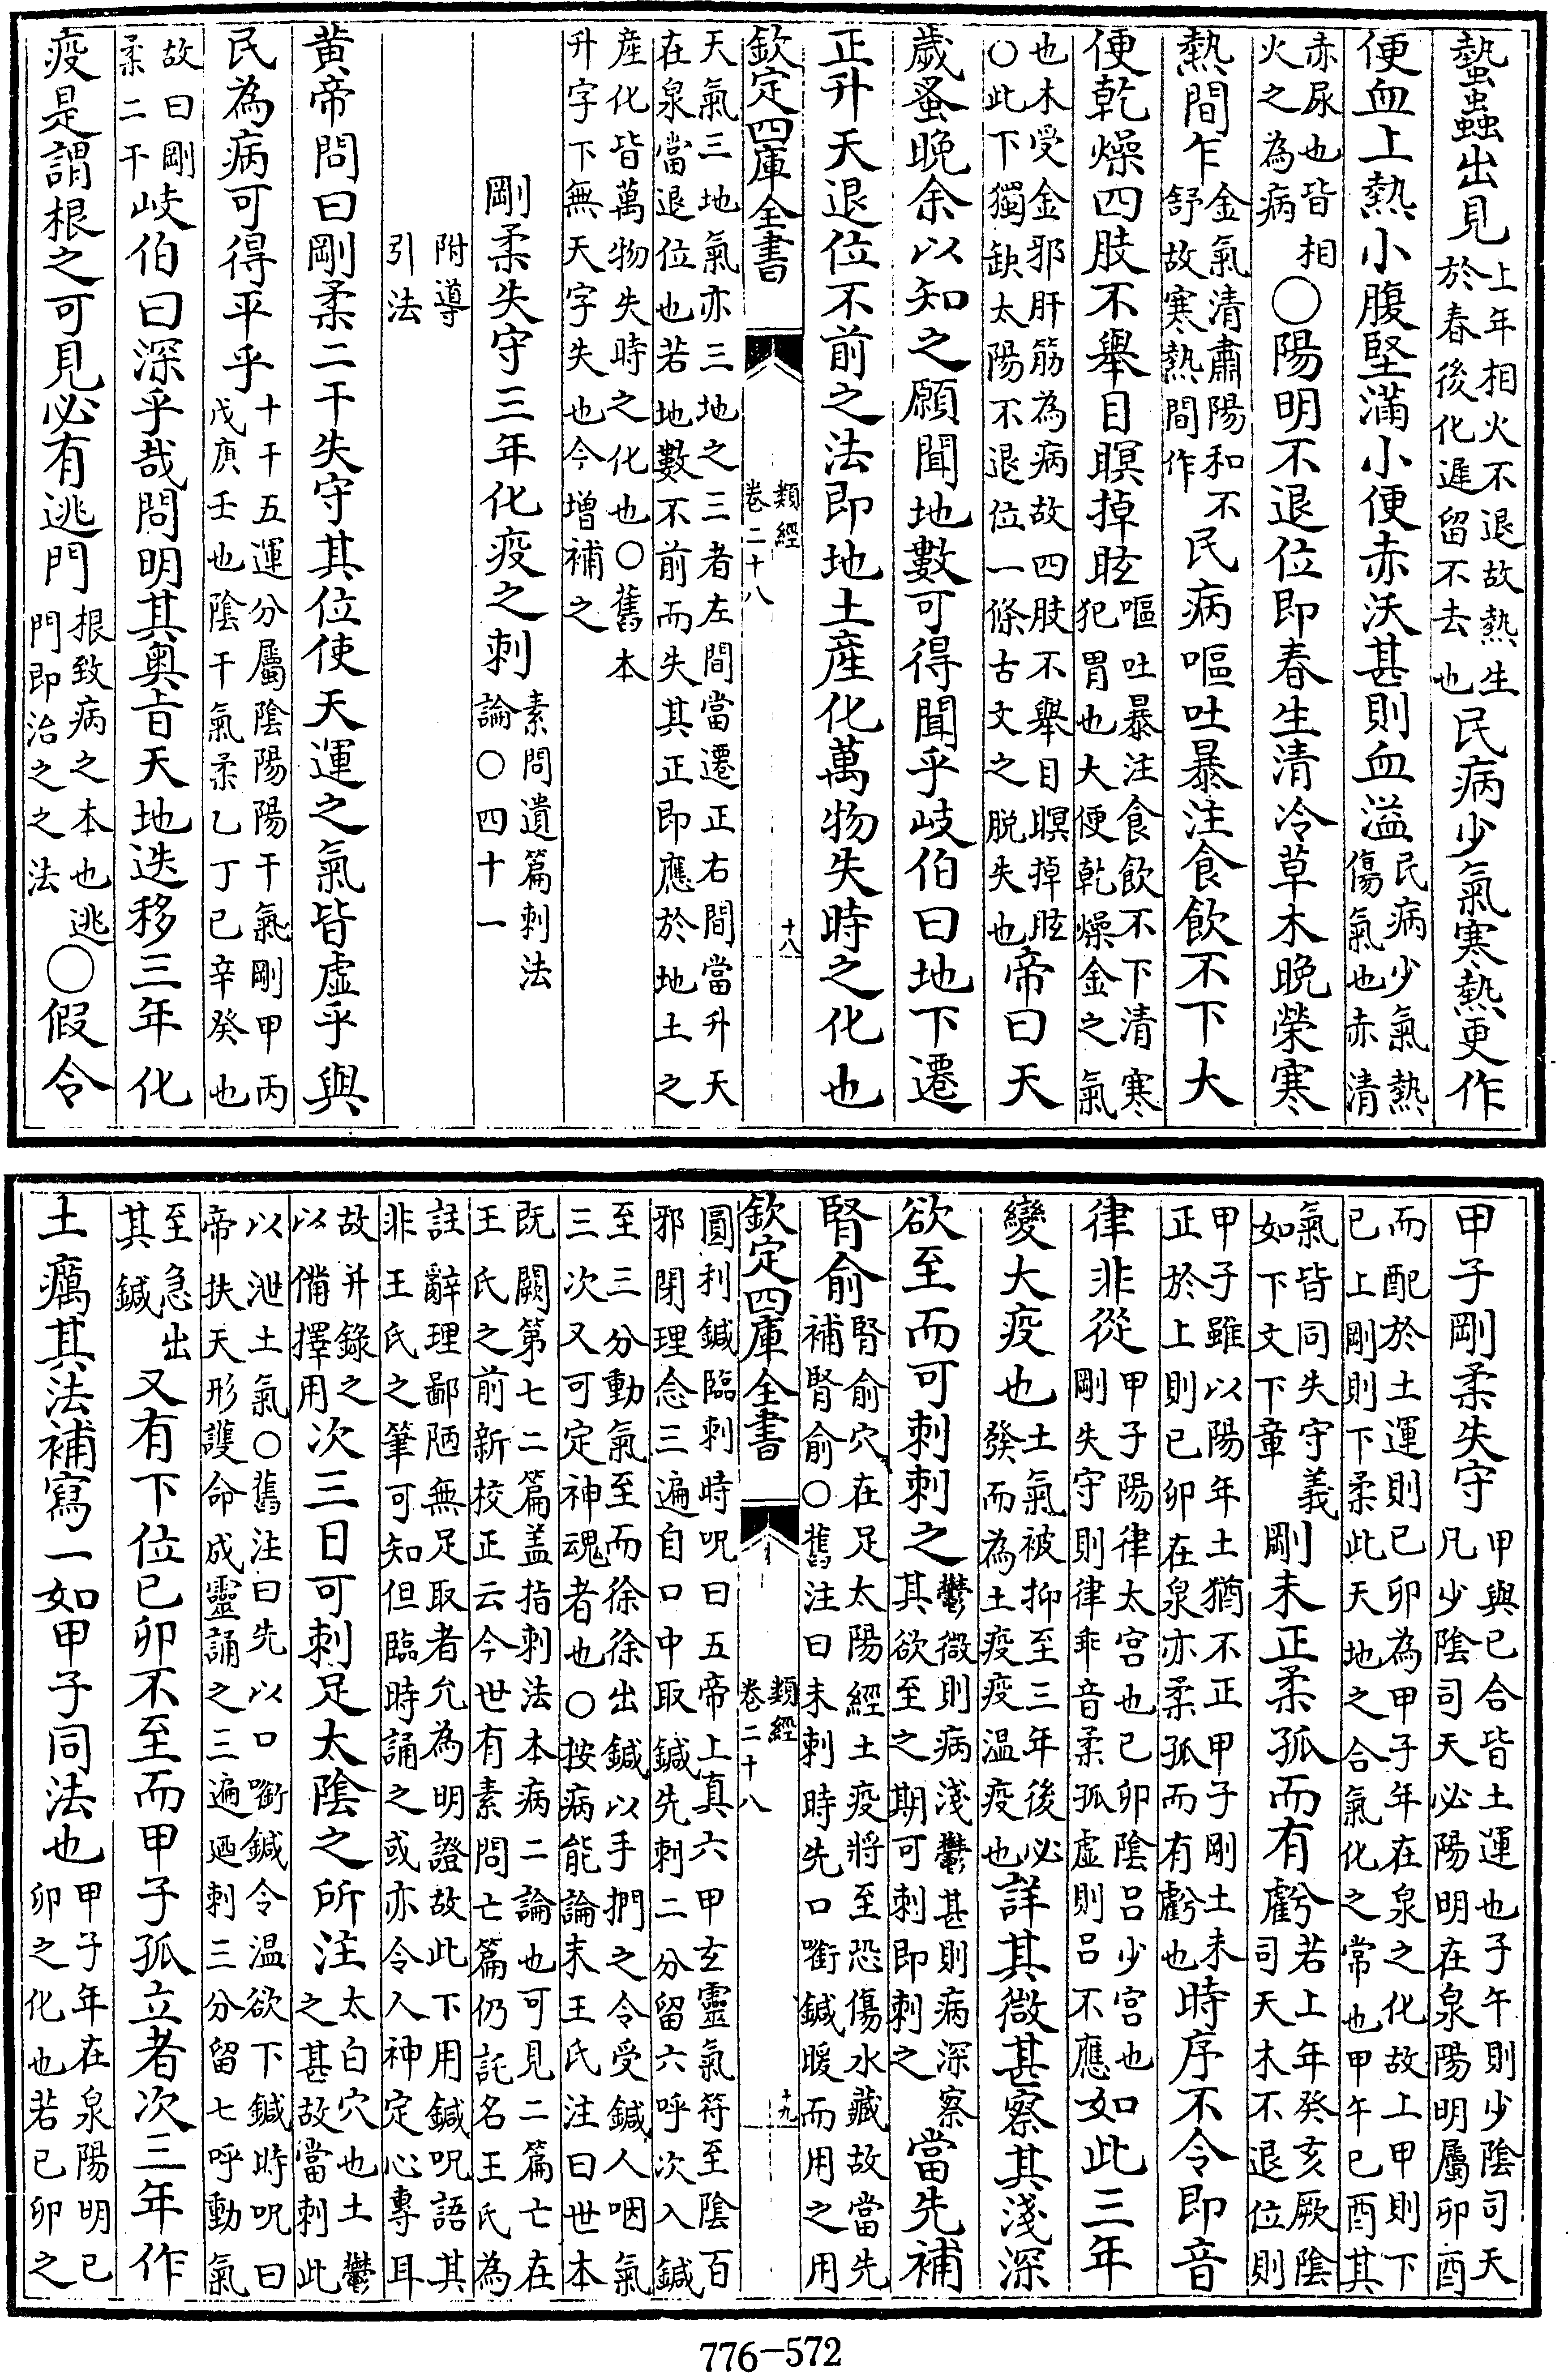 蟄蟲出見上年相火不退故熱生於春後化遲留不去也民病少氣寒熱更作
便血上熱小腹堅滿小便赤沃甚則血溢民病少氣熱傷氣也赤清
赤尿也皆相火之為病○陽明不退位即春生清冷草木晚榮寒
熱間乍金氣清肅陽和不舒故寒熱間作民病嘔吐暴注食飲不下大
便乾燥四肢不舉目瞑掉眩嘔吐暴注食飲不下清寒犯胃也大便乾燥金之氣
也木受金邪肝筋為病故四肢不舉目瞑掉眩○此下獨缺太陽不退位一條古文之脫失也帝曰天
歲蚤晚余以知之願聞地數可得聞乎岐伯曰地下遷
正升天退位不前之法即地土産化萬物失時之化也
欽定四庫全書
類經
卷二十八
十八
天氣三地氣亦三地之三者左間當遷正右間當升天在泉當退位也若地數不前而失其正即應於地土之
産化皆萬物失時之化也○舊本升字下無天字失也今增補之
剛柔失守三年化疫之刺素問遺篇刺法論○四十一
附導引法
黃帝問曰剛柔二干失守其位使天運之氣皆虛乎與
民為病可得平乎十干五運分屬陰陽陽干氣剛甲丙戊庚壬也陰干氣柔乙丁已辛癸也
故曰剛柔二干岐伯曰深乎哉問明其奧㫖天地迭移三年化
疫是謂根之可見必有逃門根致病之本也逃門即治之之法○假令
甲子剛柔失守甲與已合皆土運也子午則少陰司天凡少陰司天必陽明在泉陽明屬卯酉
而配於土運則已卯為甲子年在泉之化故上甲則下已上剛則下柔此天地之合氣化之常也甲午已酉其
氣皆同失守義如下文下章剛未正柔孤而有虧若上年癸亥厥陰司天木不退位則
甲子雖以陽年土猶不正甲子剛土未正於上則已卯在泉亦柔孤而有虧也時序不令即音
律非從甲子陽律太宮也已卯陰呂少宮也剛失守則律乖音柔孤虛則呂不應如此三年
變大疫也土氣被抑至三年後必發而為土疫疫溫疫也詳其微甚察其淺深
欲至而可刺刺之鬱微則病淺鬱甚則病深察其欲至之期可刺即刺之當先補
腎俞腎俞穴在足太陽經土疫將至恐傷水藏故當先補腎俞○舊注曰未刺時先口銜鍼暖而用之用
欽定四庫全書
類經
卷二十八
十九
圓利鍼臨刺時呪曰五帝上真六甲玄靈氣符至陰百邪閉理念三遍自口中取鍼先刺二分留六呼次入鍼
至三分動氣至而徐徐出鍼以手捫之令受鍼人咽氣三次又可定神魂者也○按病能論末王氏注曰世本
既闕第七二篇盖指刺法本病二論也可見二篇亡在王氏之前新校正云今世有素問亡篇仍託名王氏為
註辭理鄙陋無足取者允為明證故此下用鍼呪語其非王氏之筆可知但臨時誦之或亦令人神定心專耳
故并錄之以備擇用次三日可刺足太陰之所注太白穴也土鬱之甚故當刺此
以泄土氣○舊注曰先以口銜鍼令溫欲下鍼時呪曰帝扶天形護命成靈誦之三遍廼刺三分留七呼動氣
至急出其鍼又有下位已卯不至而甲子孤立者次三年作
土癘其法補寫一如甲子同法也甲子年在泉陽明已卯之化也若已卯之
776-572